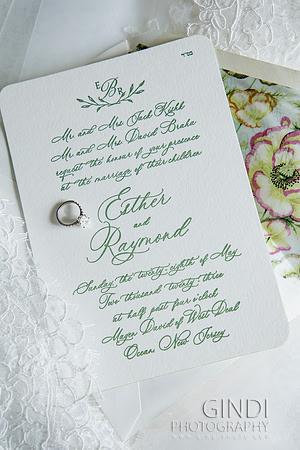 E B R
Mr. and Mrs. Jack
Mr. and Mrs. David Braha
request the honour of your presence
at the marriage of their children
Esther
and
Raymond
Sunday the twenty-eighth of May
Two thousand twenty-three
at half past four o'clock
Magen David of West Deal
Ocean, New Jersey
GINDI
PHOTOGRAPHY